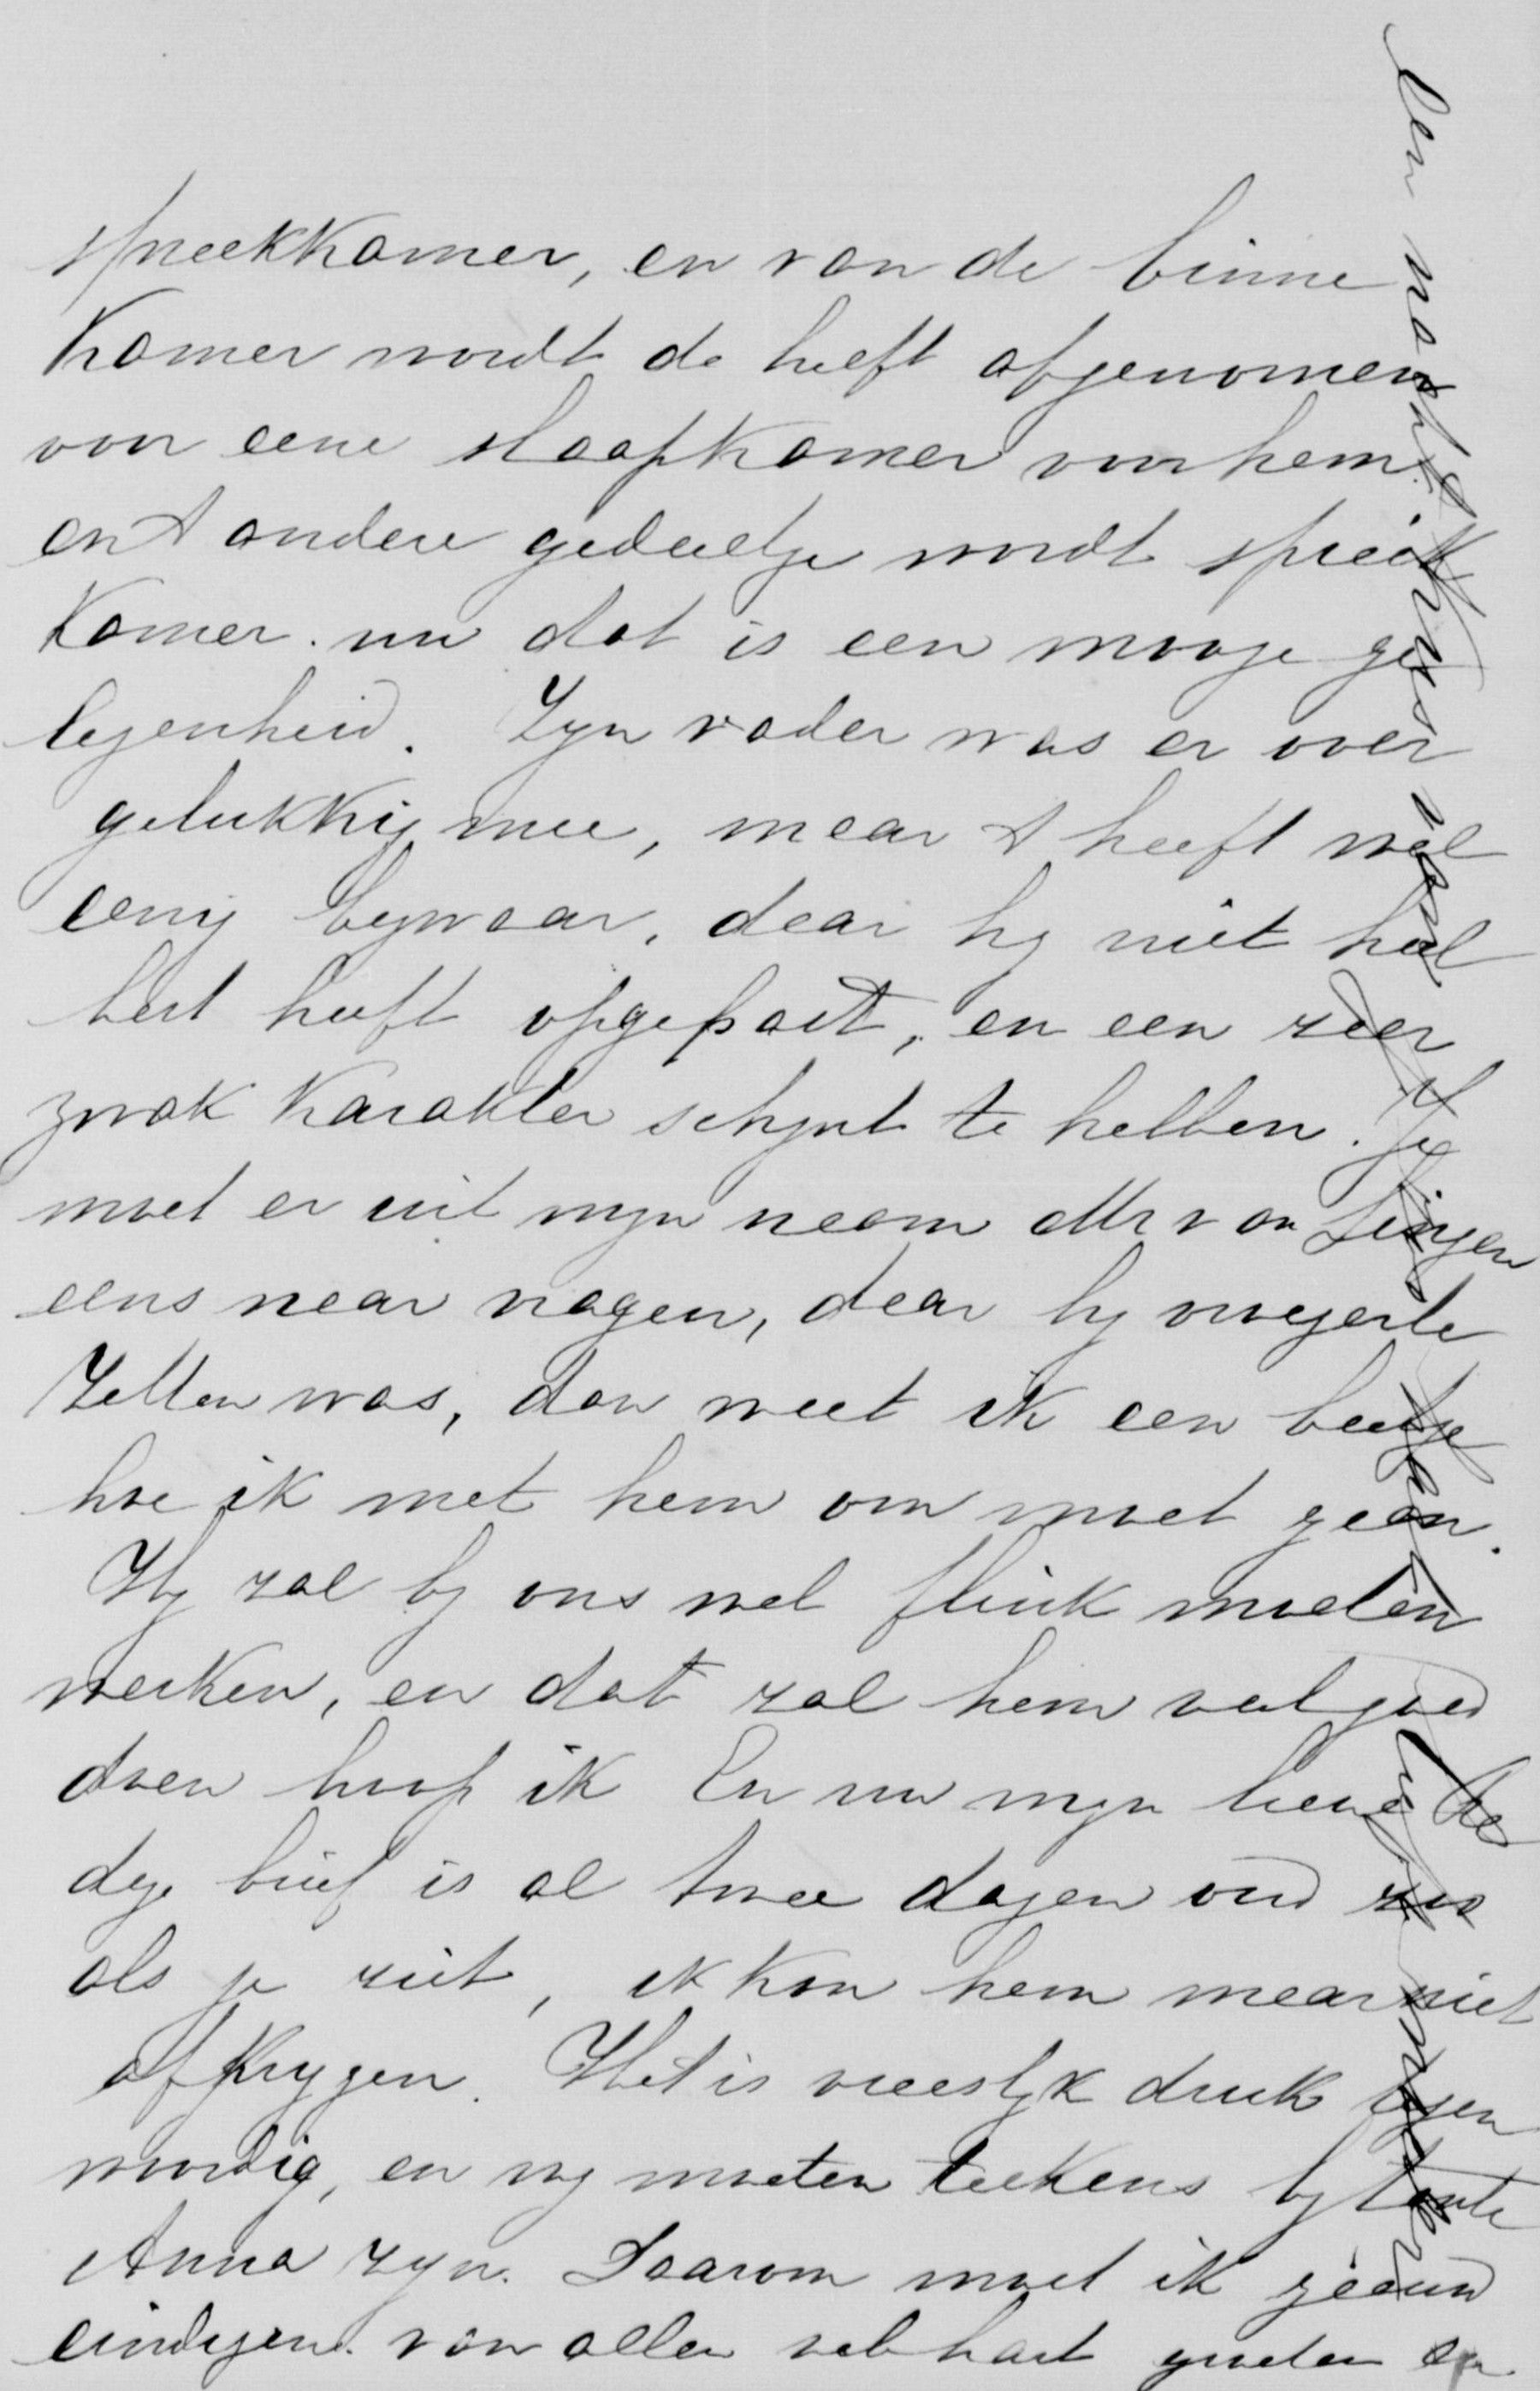 spreekkamer, en van de binne
kamer wordt de helft afgenomen
voor eene slaapkamer voor hem.
en 't andere gedeelte wordt spreek
kamer. nu dat is een mooye ge
legenheid. Zyn vader was er over
gelukkig mee, maar 't heeft wel
eenig bezwaar, daar hy niet heel
best heeft opgepast, en een zeer
zwak karakter schynt te hebben. Je
moet er uit myn naam Mr van Lingen
eens naar vragen, daar hy vroeger te
Zetten was, dan weet ik een beetje
hoe ik met hem om moet gaan.
Hy zal by ons wel flink moeten
werken, en dat zal hem veel goed
doen hoop ik En nu myn lieve
deze brief is al twee dagen oud zoo
als je ziet, ik kon hem maar niet
afkrygen. Het is vreeslyk druk tegen
woordig, en wy moeten telkens by tante
Anna zyn. Daarom moet ik gaauw
eindigen. van allen veel hart. groeten en
Een nachtkus van je